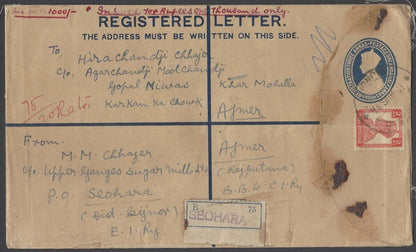 1000/- Insured for Rupees One Thousand only.
REGISTERED LETTER.
THE ADDRESS MUST BE WRITTEN ON THIS SIDE.
To
Hirachandji Chhajer
C/o. Agarchandji Moolchandji
Gopal Niwas
Karkan Ka Chowk
Khar Mohulla
Ajmer
75
From
M. M. Chhajer
C/o. Upper Ganges Sugar Mills Ltd
P.O. Seohara
(Dist Bijnor)
E. I. Ry
Ajmer
(Rajputana)
B. B. & C. I. Ry
R 75
SEOHARA